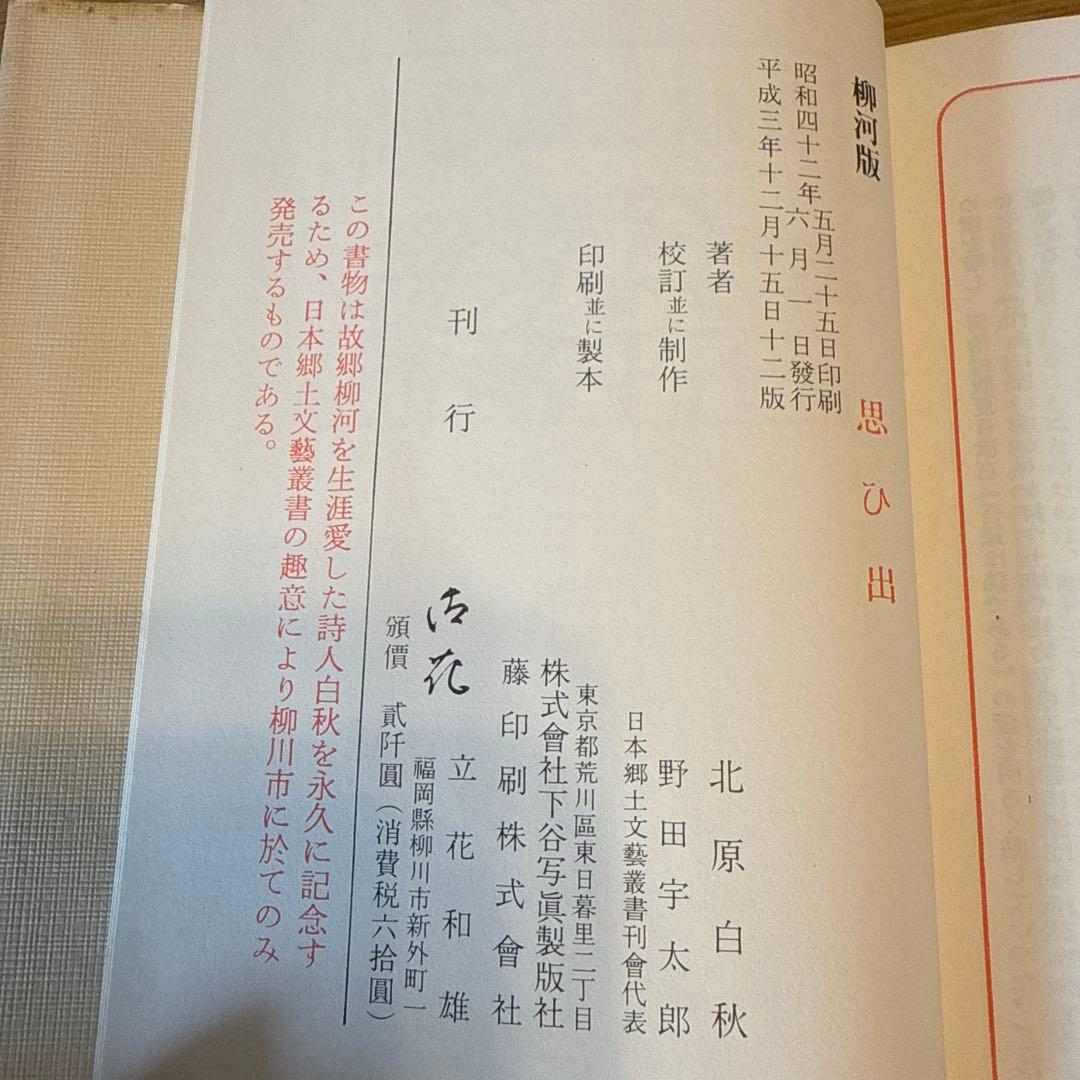 柳河版 思ひ出
昭和四十二年五月二十五日印刷
六月一日發行
平成三年十二月十五日十二版
著者 北原白秋
校訂並に制作 野田宇太郎
日本郷土文藝叢書刊會代表
東京都荒川區東日暮里二丁目
株式會社下谷写眞製版社
印刷並に製本 藤印刷株式會社
刊行 御花 立花和雄
福岡縣柳川市新外町一
頒價 貳阡圓(消費税六拾圓)
この書物は故郷柳河を生涯愛した詩人白秋を永久に記念す
るため、日本郷土文藝叢書の趣意により柳川市に於てのみ
発売するものである。